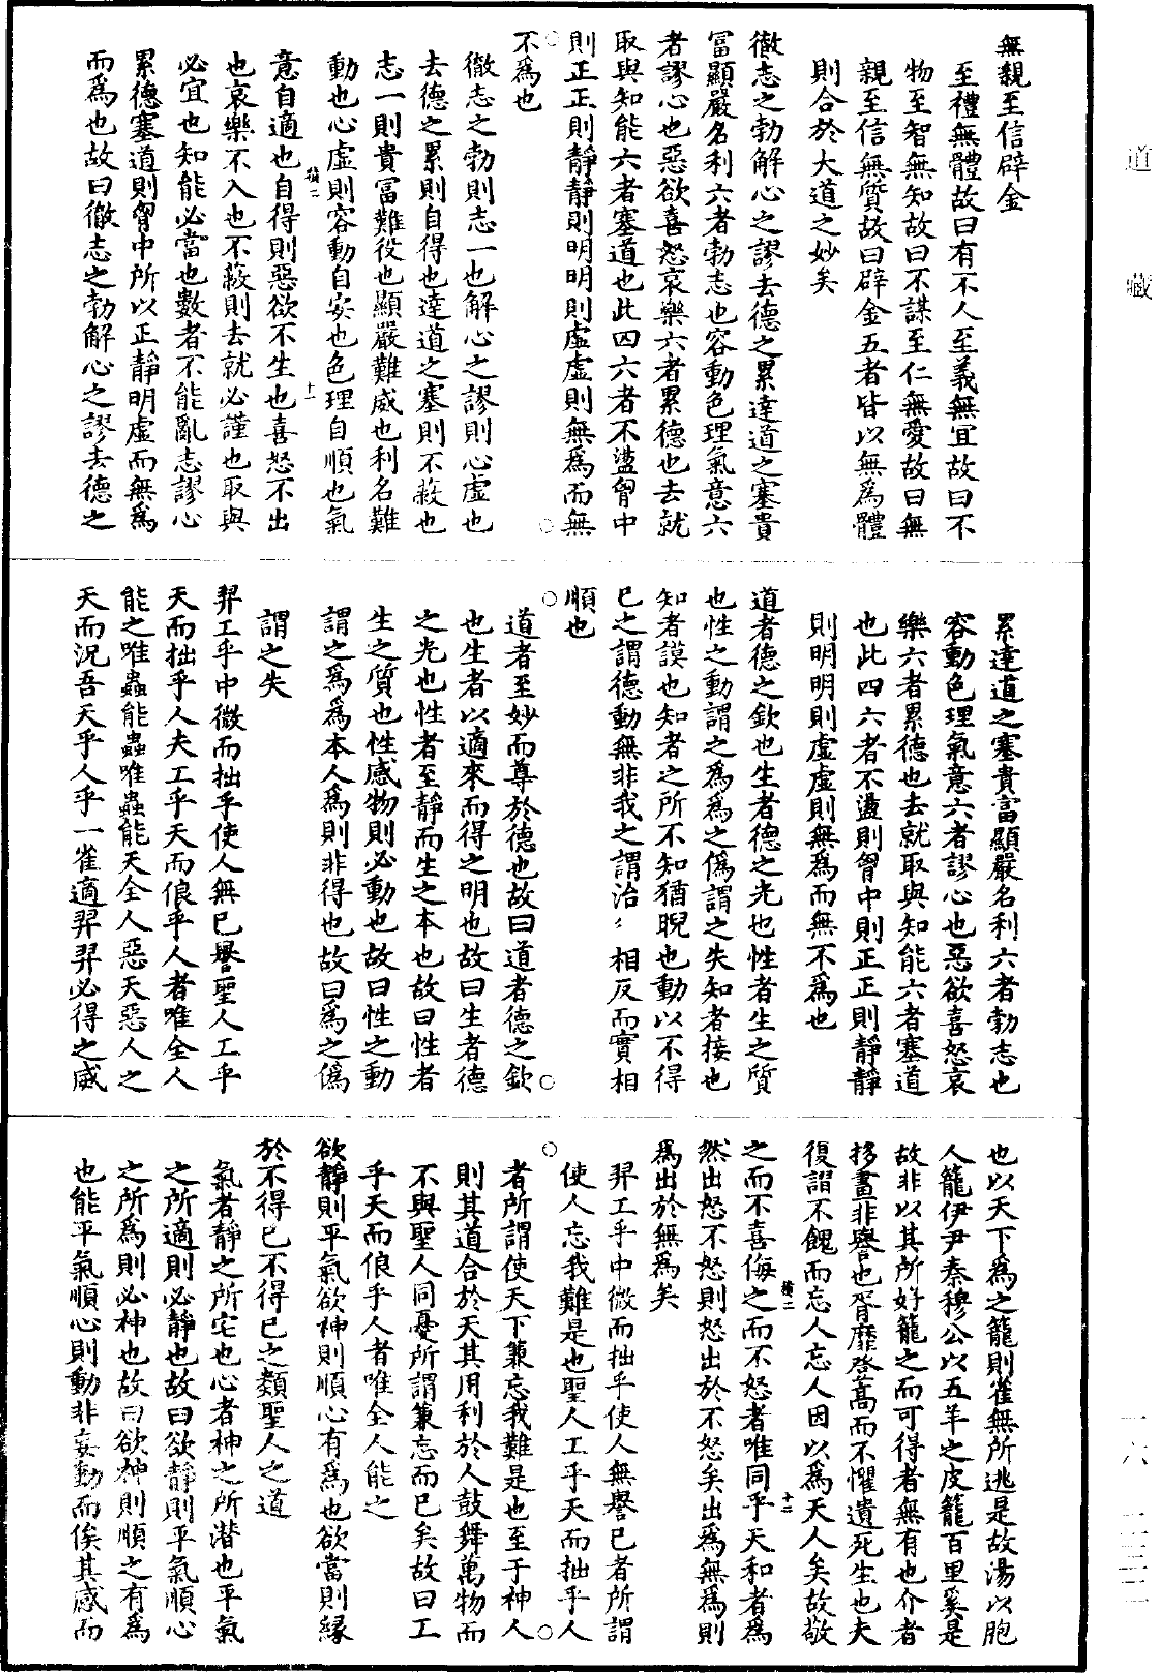 道藏
無親至信辟金
至禮無體故曰有不人至義無宜故曰不
物至智無知故曰不謀至仁無愛故曰無
親至信無質故曰辟金五者皆以無為體
則合於大道之妙矣
徹志之勃解心之謬去德之累達道之塞貴
富顯嚴名利六者勃志也容動色理氣意六
者謬心也惡欲喜怒哀樂六者累德也去就
取與知能六者塞道也此四六者不盪胷中
則正正則靜靜則明明則虛虛則無為而無
不為也
徹志之勃則志一也解心之謬則心虛也
去德之累則自得也達道之塞則不蔽也
志一則貴富難役也顯嚴難威也利名難
動也心虛則容動自安也色理自順也氣
意自適也自得則惡欲不生也喜怒不出
也哀樂不入也不蔽則去就必謹也取與
必宜也知能必當也數者不能亂志謬心
累德塞道則胷中所以正靜明虛而無為
而為也故曰徹志之勃解心之謬去德之
累達道之塞貴富顯嚴名利六者勃志也
容動色理氣意六者謬心也惡欲喜怒哀
樂六者累德也去就取與知能六者塞道
也此四六者不盪則胷中則正正則靜靜
則明明則虛虛則無為而無不為也
道者德之欽也生者德之光也性者生之質
也性之動謂之為為之偽謂之失知者接也
知者謨也知者之所不知猶睨也動以不得
已之謂德動無非我之謂治〻相反而實相
順也
道者至妙而尊於德也故曰道者德之欽
也生者以適來而得之明也故曰生者德
之光也性者至靜而生之本也故曰性者
生之質也性感物則必動也故曰性之動
謂之為為本人為則非得也故曰為之偽
謂之失
羿工乎中微而拙乎使人無已譽聖人工乎
天而拙乎人夫工乎天而俍乎人者唯全人
能之唯蟲能蟲唯蟲能天全人惡天惡人之
天而況吾天乎人乎一雀適羿羿必得之威
也以天下為之籠則雀無所逃是故湯以胞
人籠伊尹秦穆公以五羊之皮籠百里奚是
故非以其所好籠之而可得者無有也介者
拸畫非譽也胥靡登高而不懼遺死生也夫
復謵不餽而忘人忘人因以為天人矣故敬
之而不喜侮之而不怒者唯同乎天和者為
然出怒不怒則怒出於不怒矣出為無為則
為出於無為矣
羿工乎中微而拙乎使人無譽已者所謂
使人忘我難是也聖人工乎天而拙乎人
者所謂使天下兼忘我難是也至于神人
則其道合於天其用利於人鼓舞萬物而
不與聖人同憂所謂兼忘而已矣故曰工
乎天而俍乎人者唯全人能之
欲靜則平氣欲神則順心有為也欲當則緣
於不得已不得已之類聖人之道
氣者靜之所宅也心者神之所潛也平氣
之所適則必靜也故曰欲靜則平氣順心
之所為則必神也故曰欲神則順之有為
也能平氣順心則動非妄動而俟其感而
一六　二三二